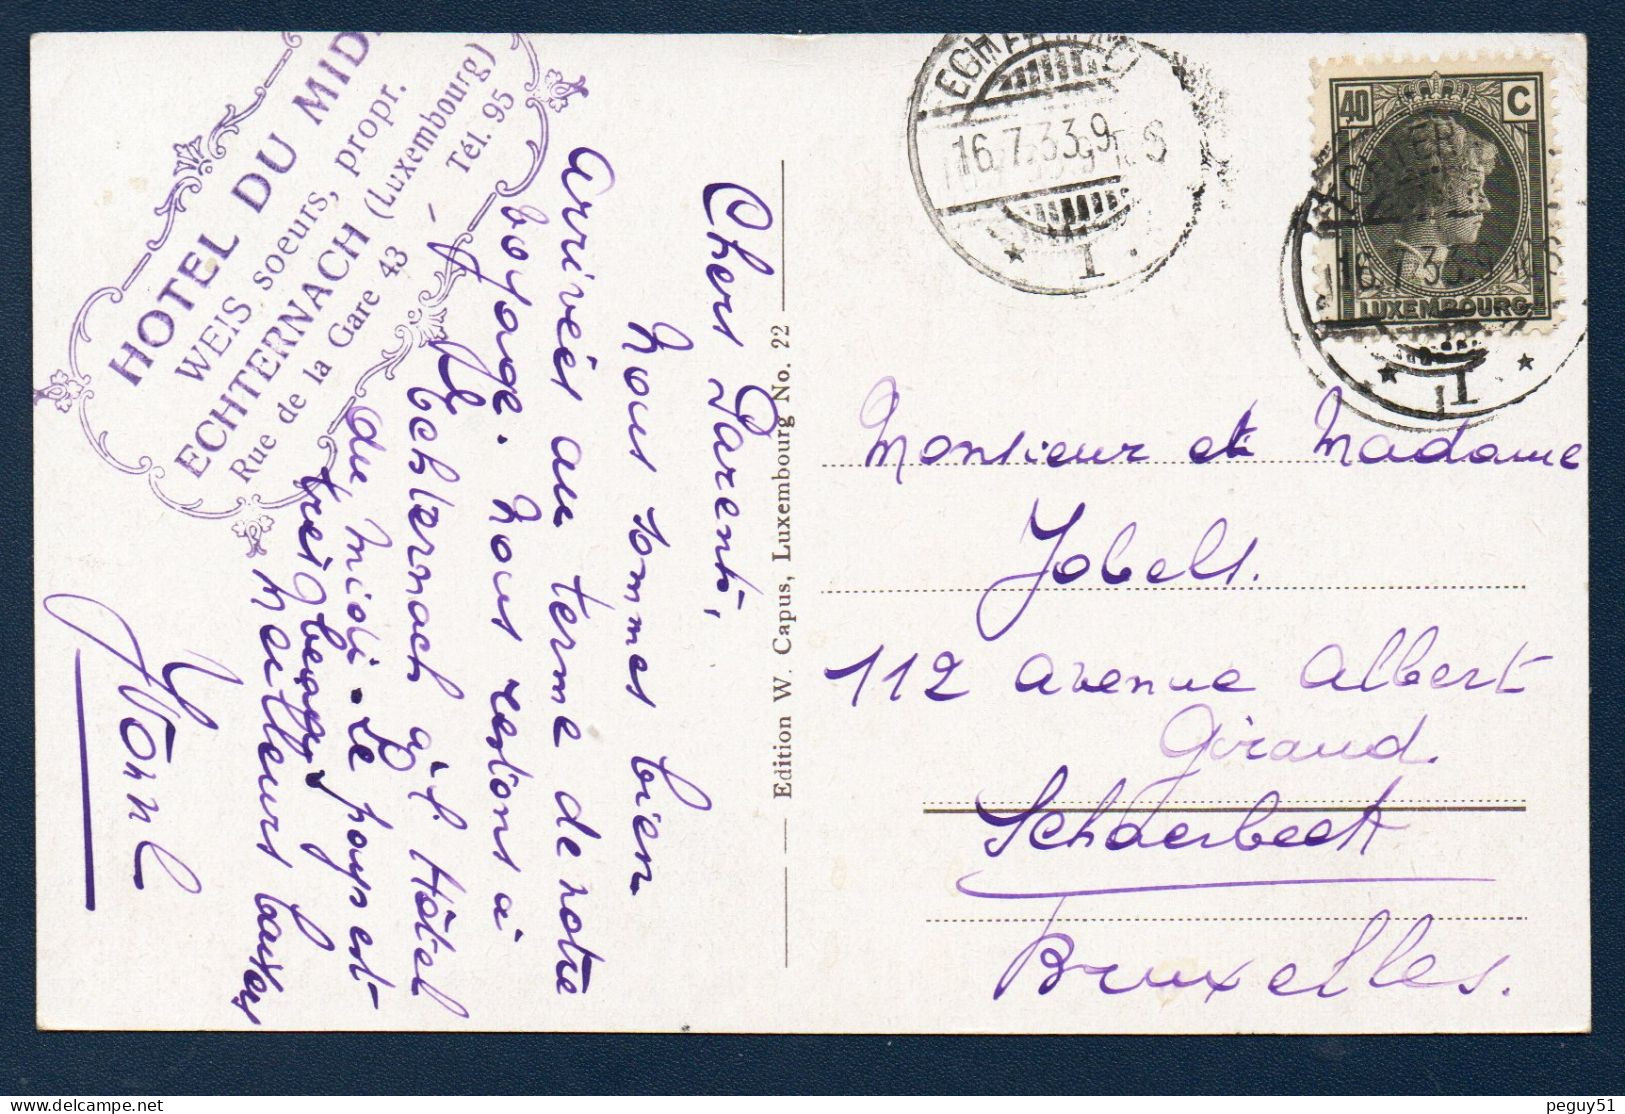 HOTEL DU MIDI
WEIS soeurs, propr.
ECHTERNACH (Luxembourg)
Rue de la Gare 43 - Tél. 95
Chers Parents,
Nous sommes bien
arrivés au terme de notre
voyage. Nous restons à
Echternach à l'Hôtel
du Midi. Le pays est
très beau
Meilleurs baisers
Yvonne
Edition W. Capus, Luxembourg No. 22
16.7.33.9
40 C
LUXEMBOURG
16.7.33.9
Monsieur et Madame
Jobels.
112 avenue Albert
Giraud.
Schaerbeek
Bruxelles.
peguy51